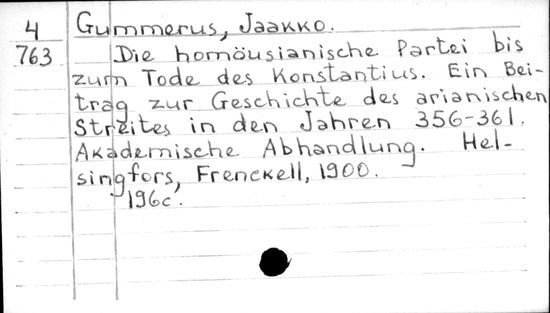 4 Gummerus, Jaakko.
763 Die homöusianische Partei bis
zum Tode des Konstantius. Ein Bei-
trag zur Geschichte des arianischen
Streites in den Jahren 356-361.
Akademische Abhandlung. Hel-
singfors, Frenckell, 1900.
196c.